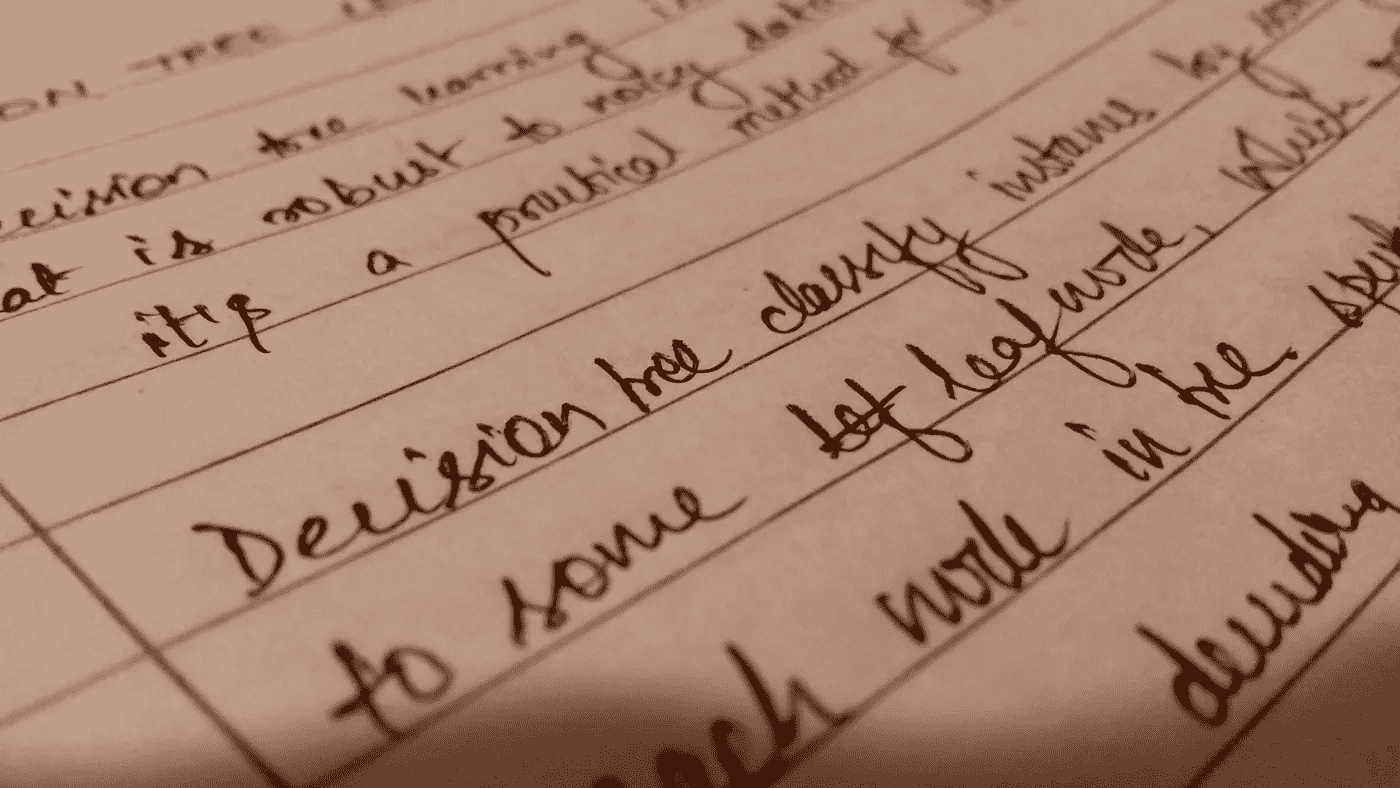 TREE
tree learning
at is robust to noisy data
it's a practical method for
Decision tree classify instances by
to some leaf node, which
each node in tree.